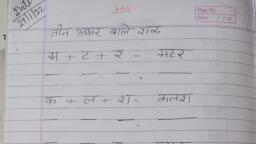 29/1/22
तीन अक्षर वाले शब्द
म + ट + र = मटर
क + ल + श = कलश